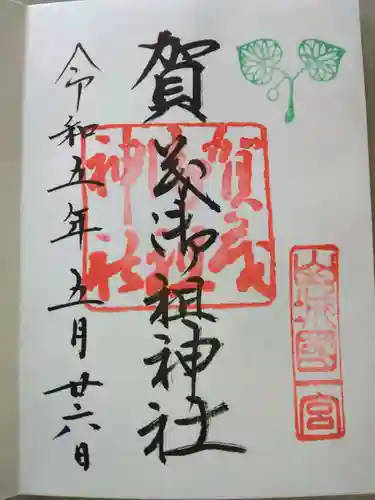 山城國一宮
賀茂御祖神社
賀茂御祖神社
令和五年五月廿六日